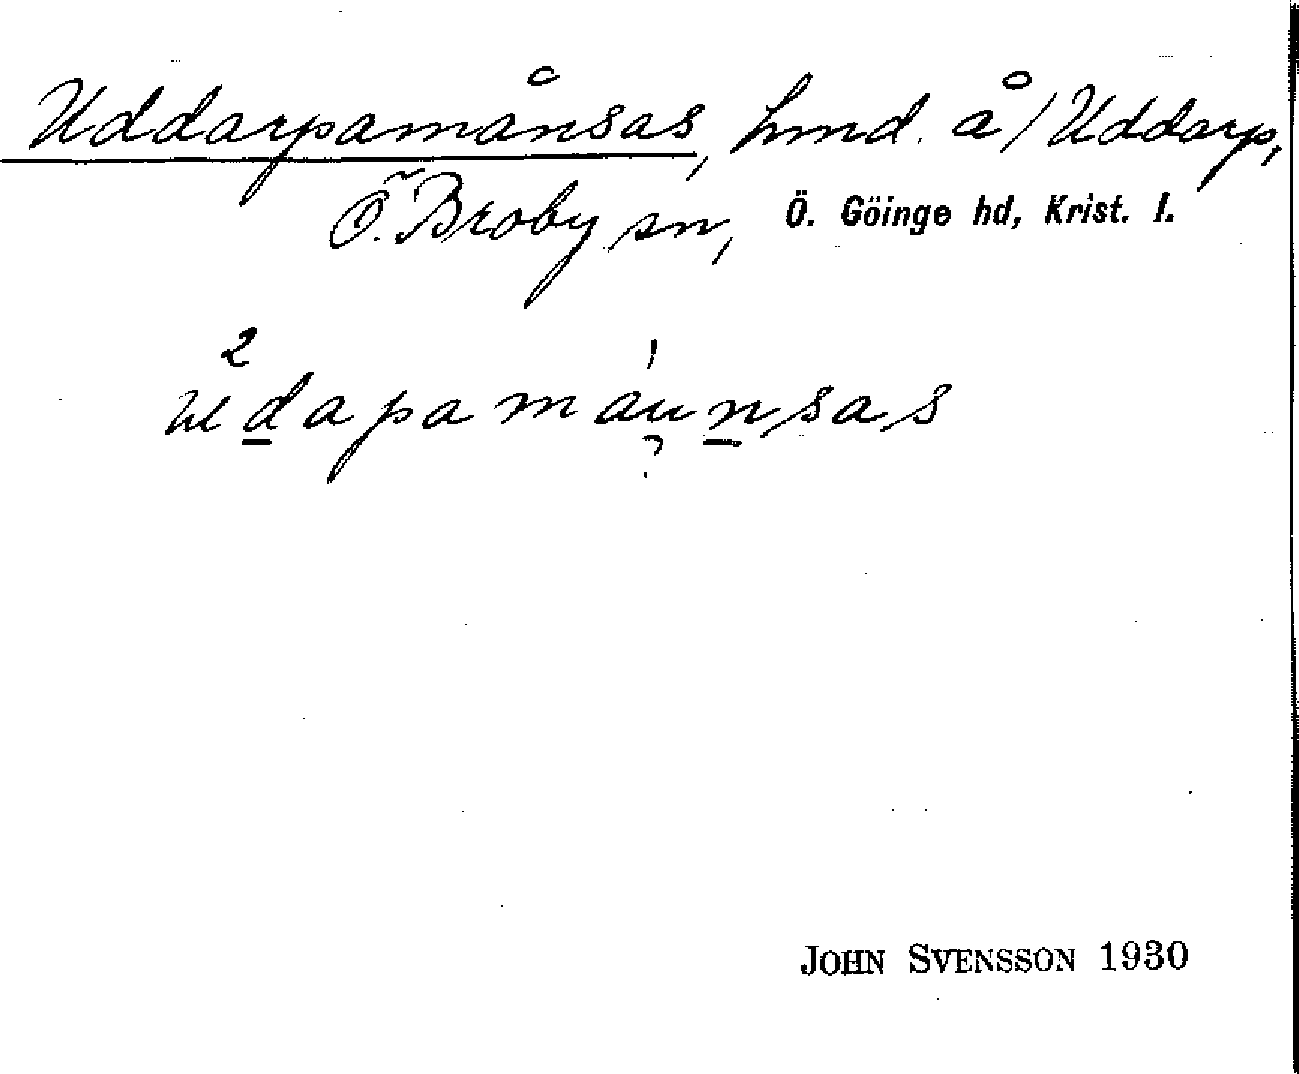 Uddarpamånsas, hmd. å/Uddarp,
Ö. Broby sn, Ö. Göinge hd, Krist. l.
ud̲apamaun̲sas
JOHN SVENSSON 1930